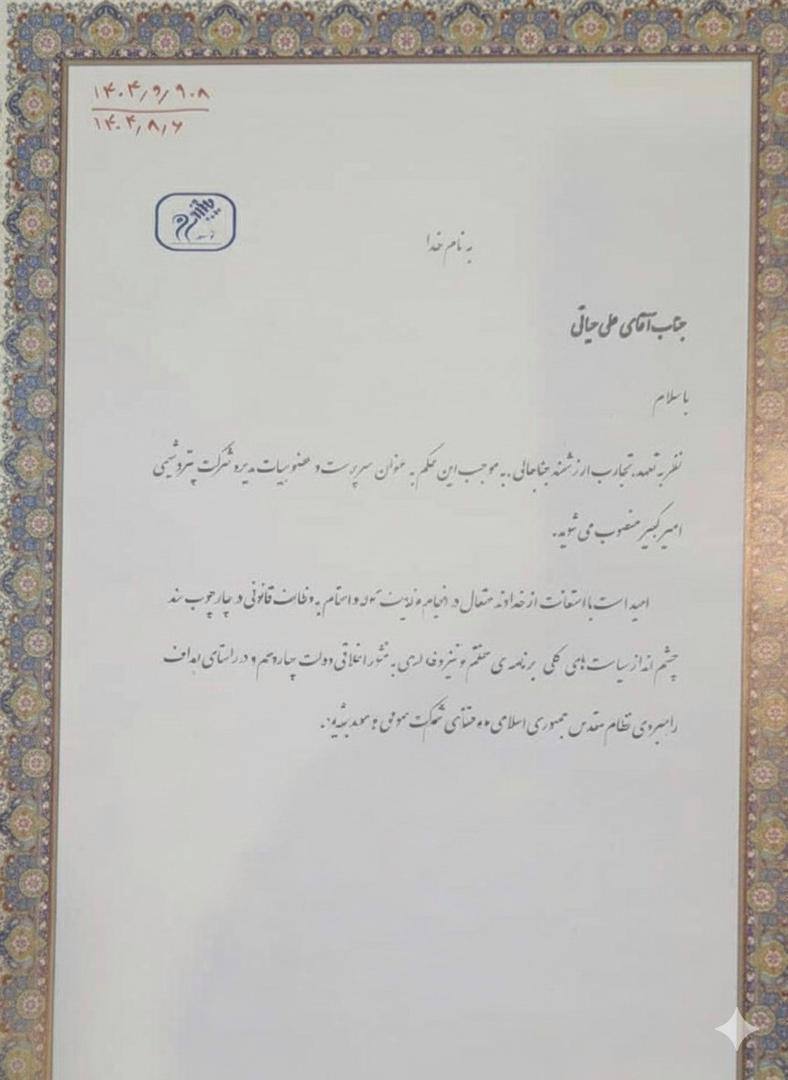 ۱۴۰۴/۹/۹۰۸
۱۴۰۴/۸/۶
به نام خدا
جناب آقای علی حیاتی
با سلام
نظر به تعهد، تجارب ارزشمند جنابعالی، به موجب این حکم به عنوان سرپرست و عضو هیات مدیره شرکت پتروشیمی
امیرکبیر منصوب می شوید.
امید است با استعانت از خداوند متعال در انجام و اهتمام به وظایف قانونی در چارچوب سند
چشم انداز سیاست های کلی برنامه ی هفتم و نیز وفاداری به منشور اخلاقی دولت چهاردهم و در راستای اهداف
راهبردی نظام مقدس جمهوری اسلامی شرکت موفق و موید باشید.